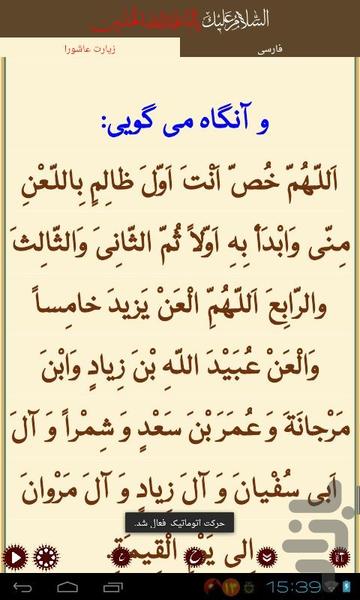 السَّلامُ عَلَيْكَ
زیارت عاشورا
فارسی
و آنگاه می گویی:
اَللّهُمَّ خُصَّ اَنْتَ اَوَّلَ ظالِمٍ بِاللَّعْنِ
مِنّی وَابْدَأْ بِهِ اَوَّلاً ثُمَّ الثّانِیَ وَالثّالِثَ
والرّابِعَ اَللّهُمَّ الْعَنْ یَزیدَ خامِساً
وَالْعَنْ عُبَیْدَ اللّهِ بْنَ زِیادٍ وَابْنَ
مَرْجانَةَ وَ عُمَرَ بْنَ سَعْدٍ وَ شِمْراً وَ آلَ
اَبی سُفْیانَ وَ آلَ زِیادٍ وَ آلَ مَرْوانَ
حرکت اتوماتیک فعال شد.
اِلی یَوْمِ الْقِیمَةِ.
بازار
15:39